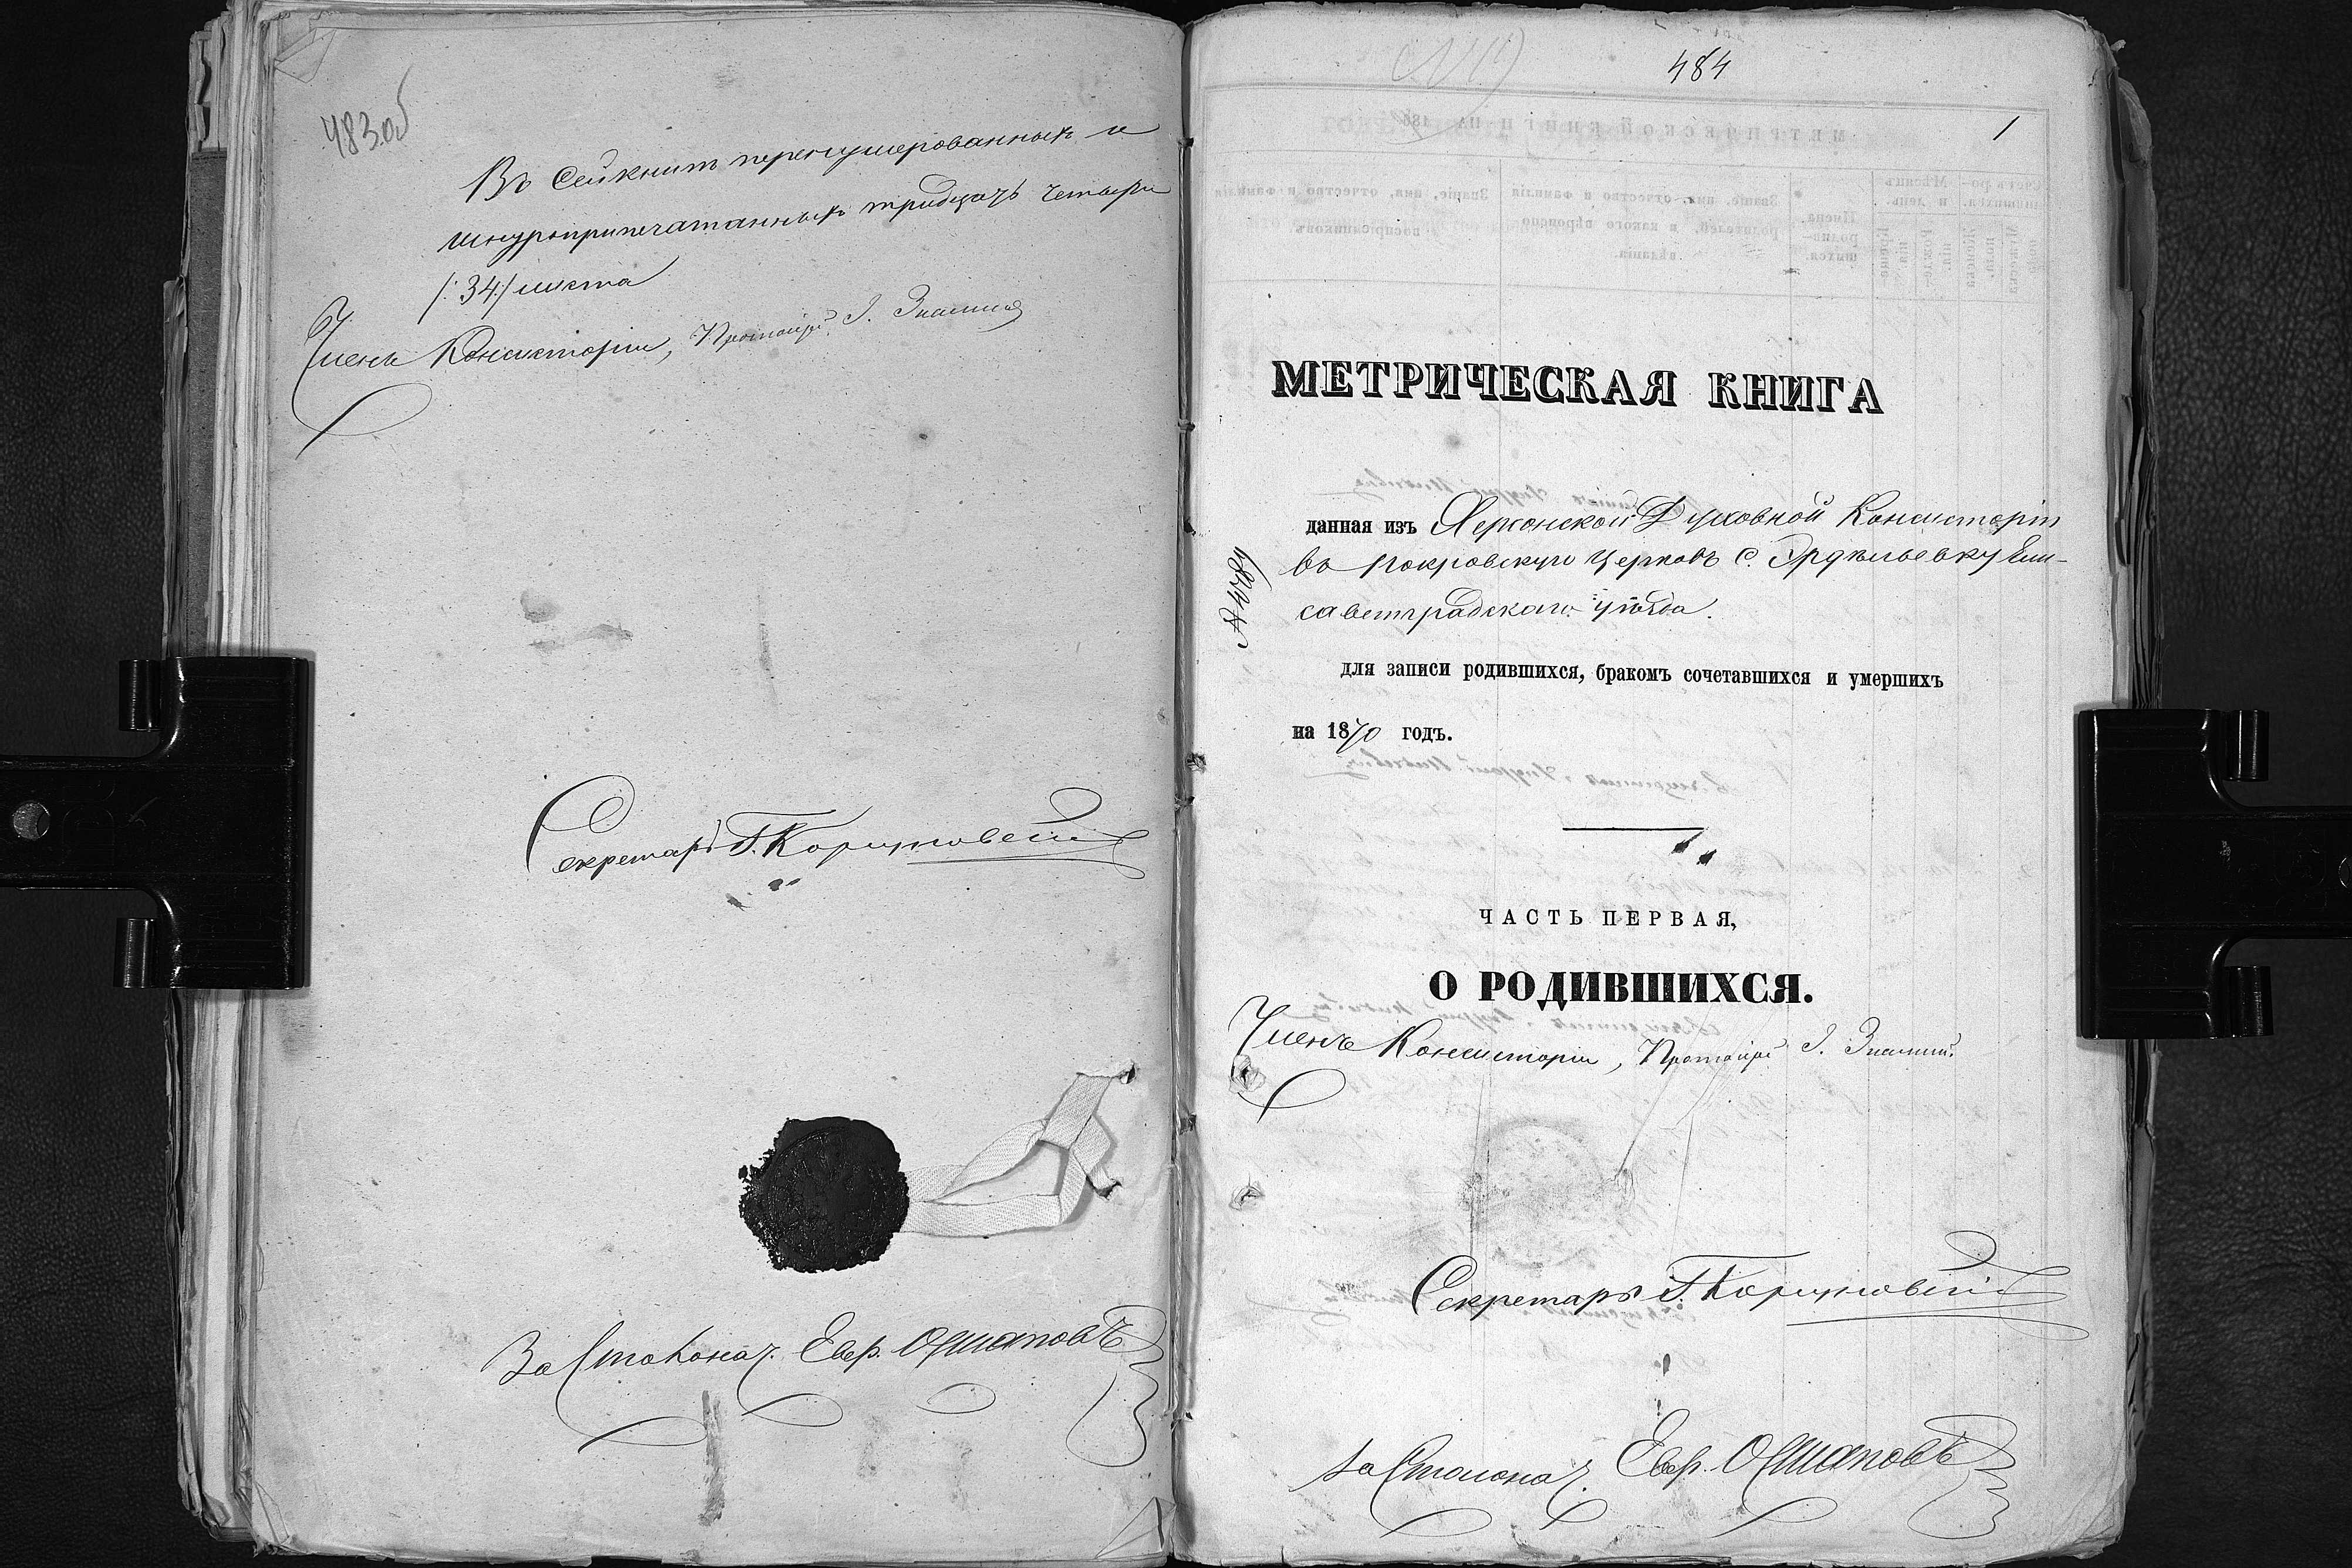 483 об
Въ сей книгѣ перенумерованныхъ и
шнуроприпечатанныхъ тридцать четыре
/:34:/ листа
Членъ Консисторіи, Протоіерей І. Знаменскій
Секретарь
За Столонач. Евр.
484
1
МЕТРИЧЕСКАЯ КНИГА
данная изъ Херсонской Духовной Консисторіи
въ Покровскую церковь с. Эрделевку Ели-
саветградскаго уѣзда.
для записи родившихся, бракомъ сочетавшихся и умершихъ
на 1870 годъ.
ЧАСТЬ ПЕРВАЯ,
О РОДИВШИХСЯ.
Членъ Консисторіи, Протоіерей І.
Секретарь
За Столонач. Евр.